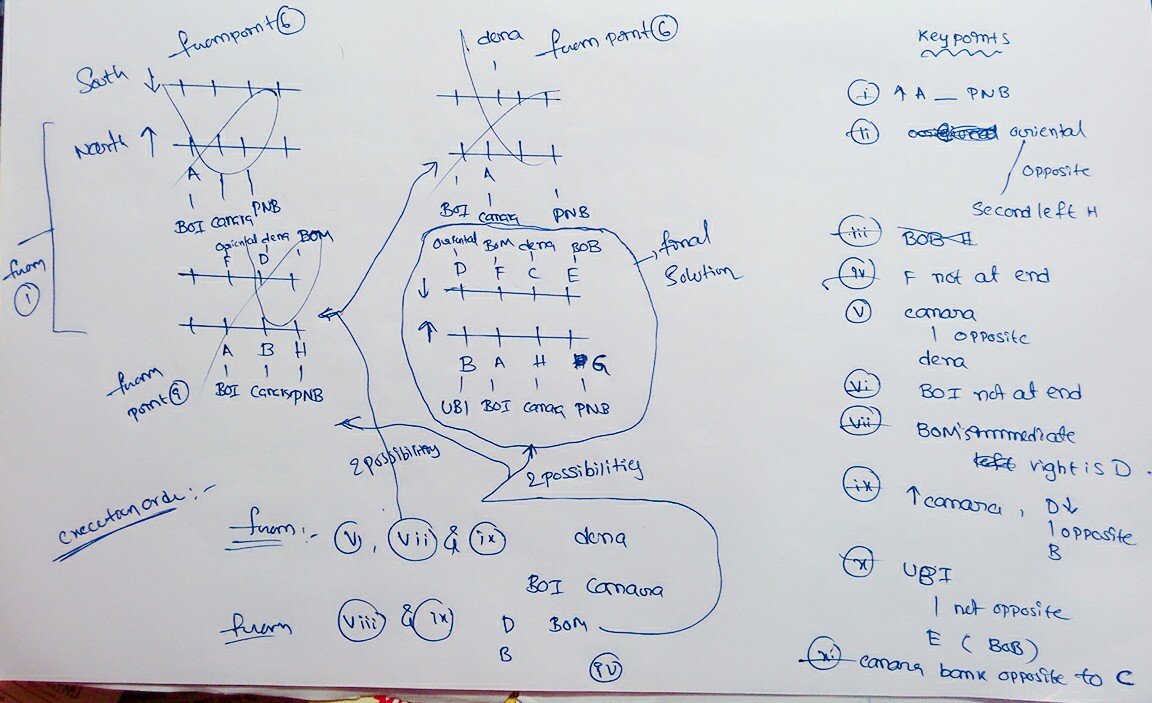 from point ⑥
South ↓
North ↑
A
BOI canara PNB
from ①
Oriental dena BOM
F D
A B H
BOI Canara PNB
from point ⑨
dena from point ⑥
A
BOI canara PNB
Oriental BOM dena BOB
D F C E
↓
↑
B A H G
UBI BOI canara PNB
final
Solution
2 possibility
2 possibilities
execution order :-
from :- ⓥ, ⓥⅱⅰ & ⓘⅹ dena
BOI Canara
from ⓥⅱⅰⅰ & ⓘⅹ D BOM
B
ⓘⅴ
Key points
ⓘ ↑ A — PNB
ⓘⅰ oriental
opposite
Second left H
ⓘⅰⅰ BOB H
ⓘⅴ F not at end
ⓥ canara
| opposite
dena
ⓥⅰ BOI not at end
ⓥⅰⅰ BOM's immediate
left right is D.
ⓘⅹ ↑ canara, D↓
| opposite
B
ⓧ UBI
| not opposite
E (BOB)
ⓧⅰ canara bank opposite to C